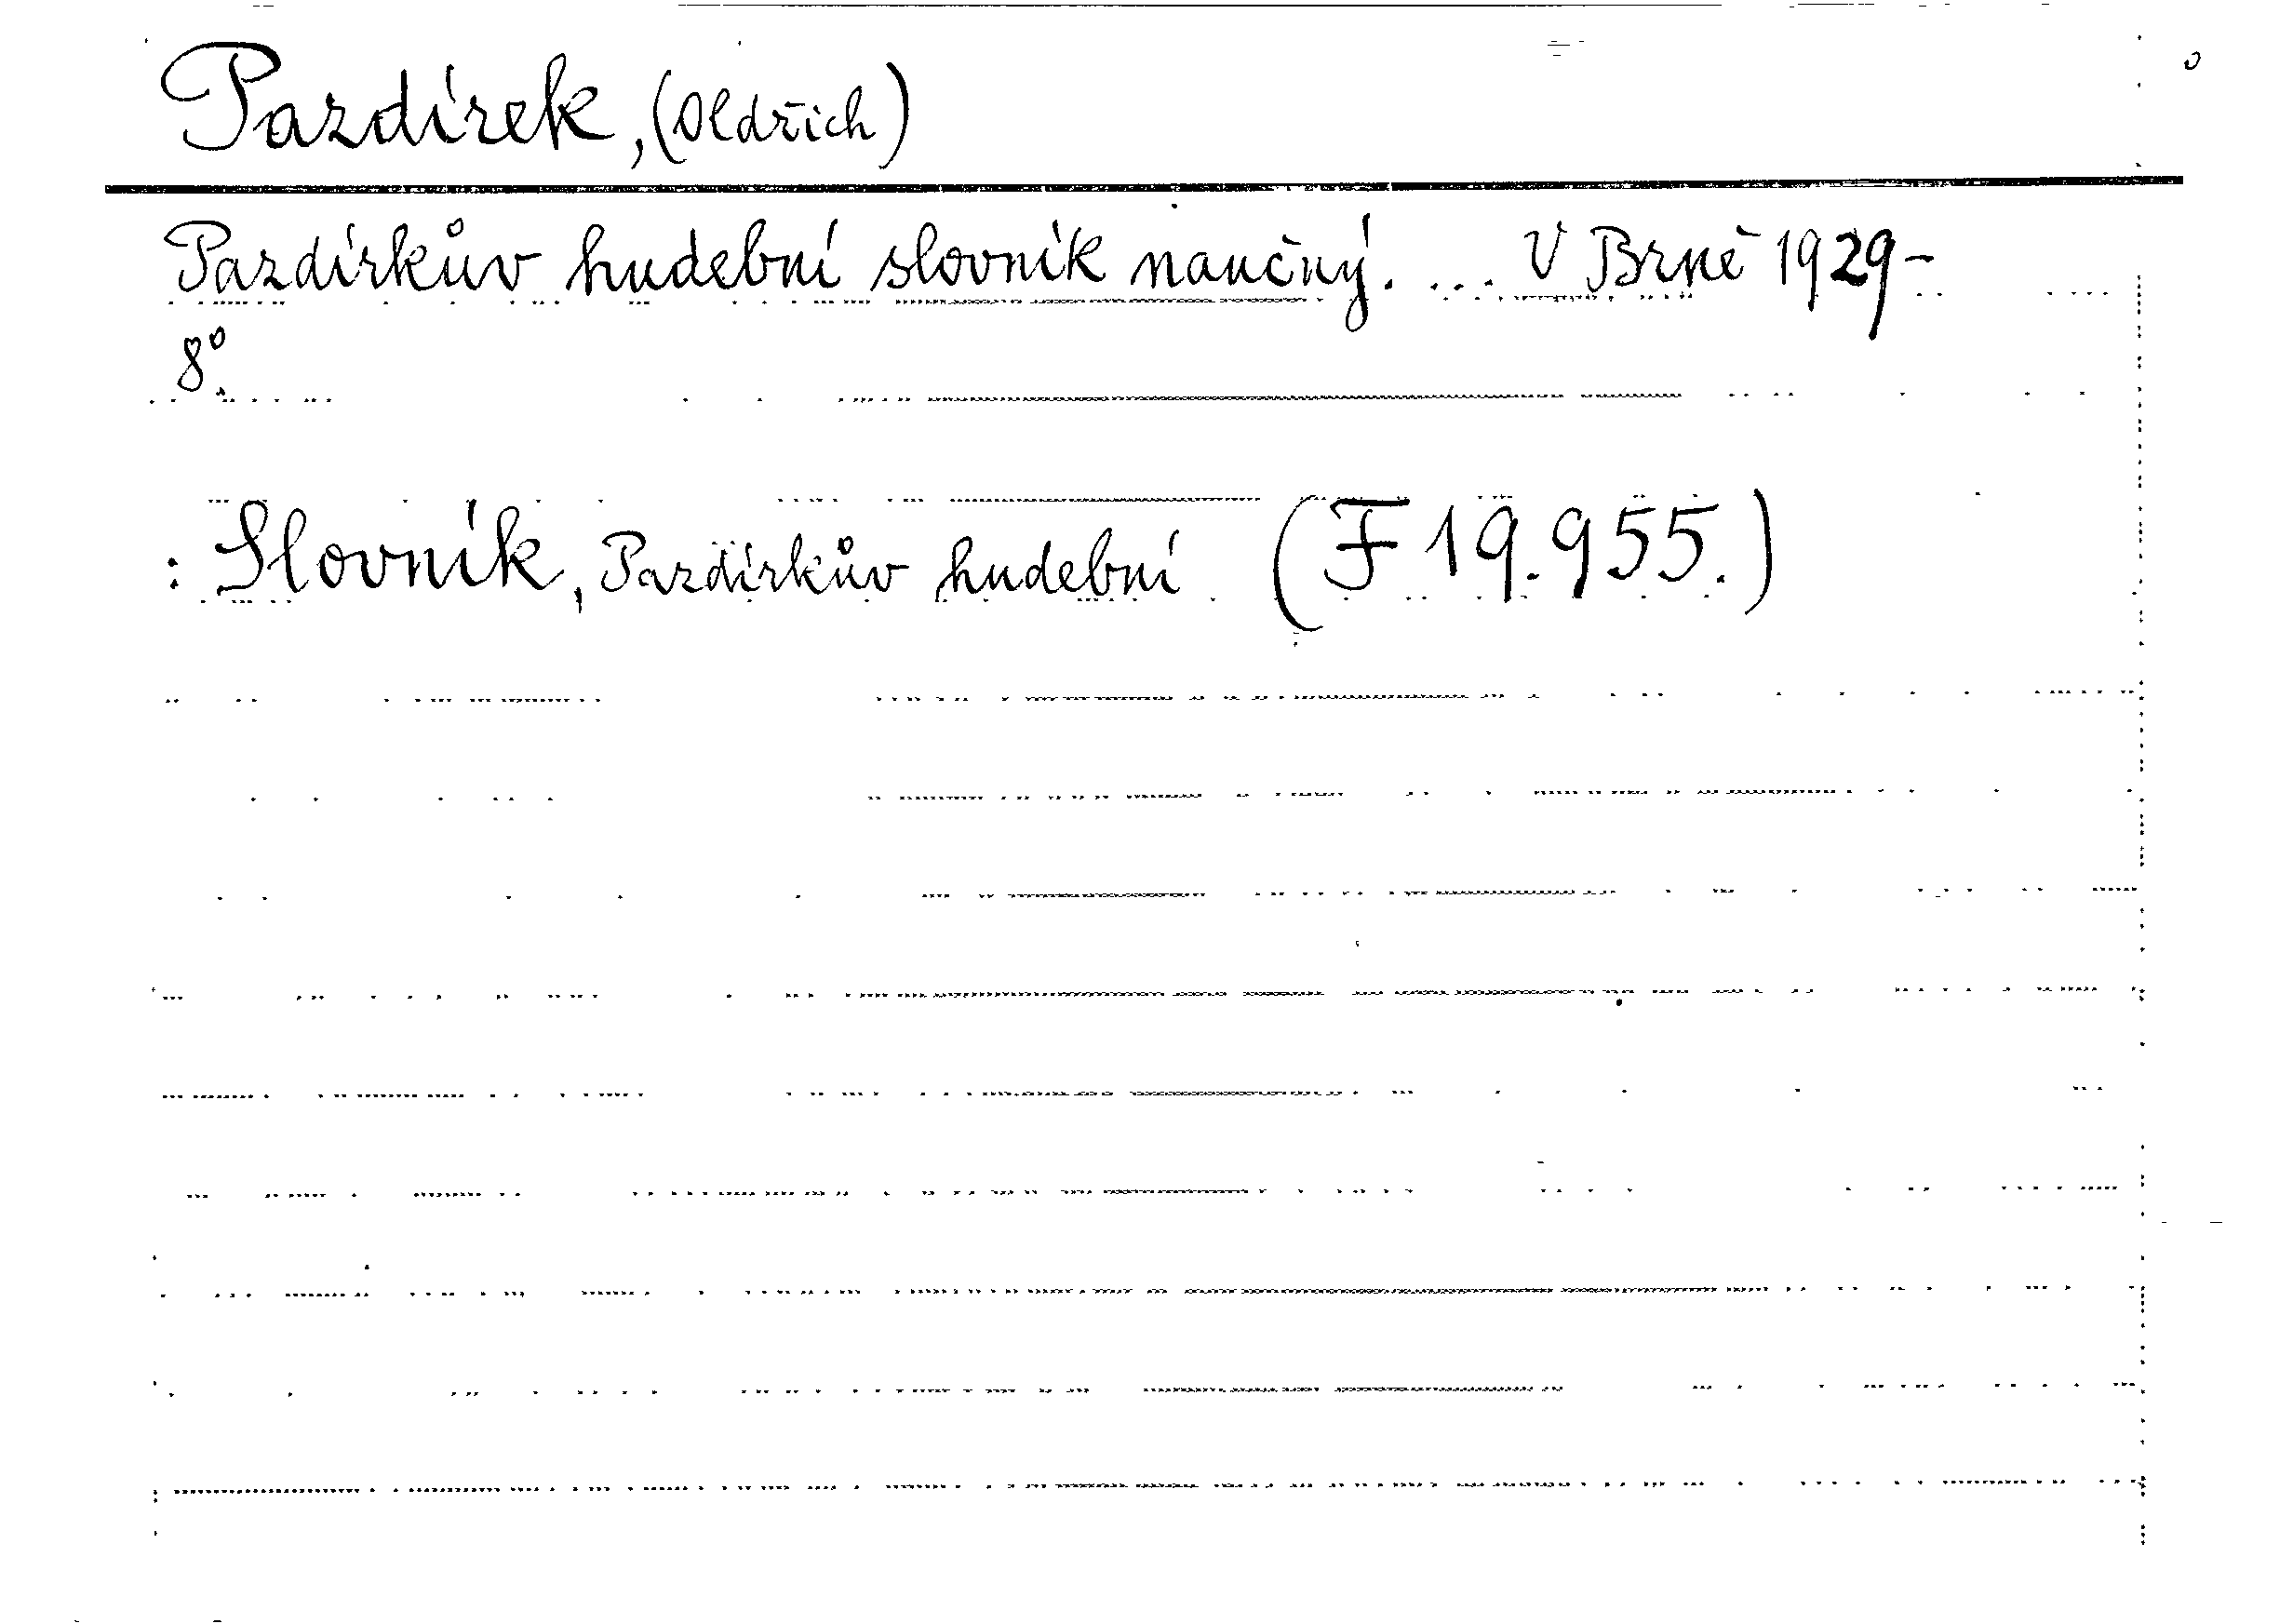 Pazdírek, (Oldřich)
Pazdírkův hudební slovník naučný. ... V Brně 1929-
8°.
: Slovník, Pazdírkův hudební (F 19.955.)